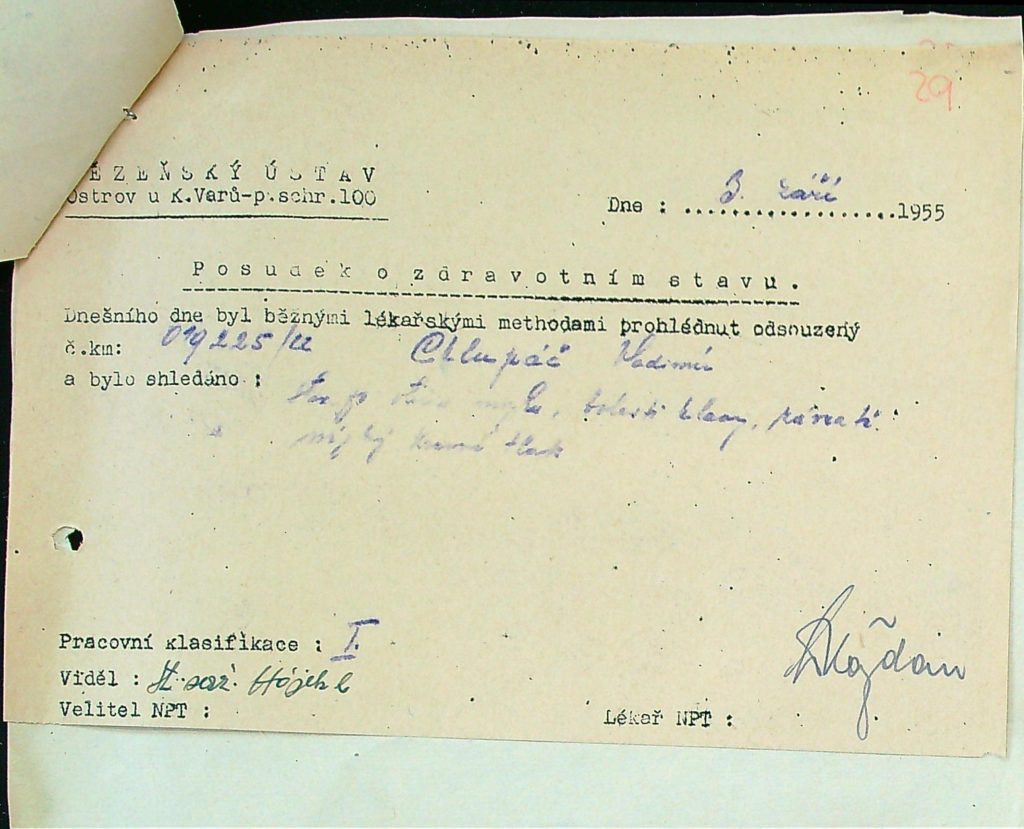 29
ĚZEŇSKÝ ÚSTAV
Ostrov u K.Varů-p.schr.100
Dne : 3. září 1955
Posudek o zdravotním stavu.
Dnešního dne byl běžnými lékařskými methodami prohlédnut odsouzený
č.km: 019225/ Chlupáč Vladimír
a bylo shledáno :
bolesti hlavy, závratě
nízký krevní tlak
Pracovní klasifikace : I.
Viděl :
Velitel NPT :
Lékař NPT :